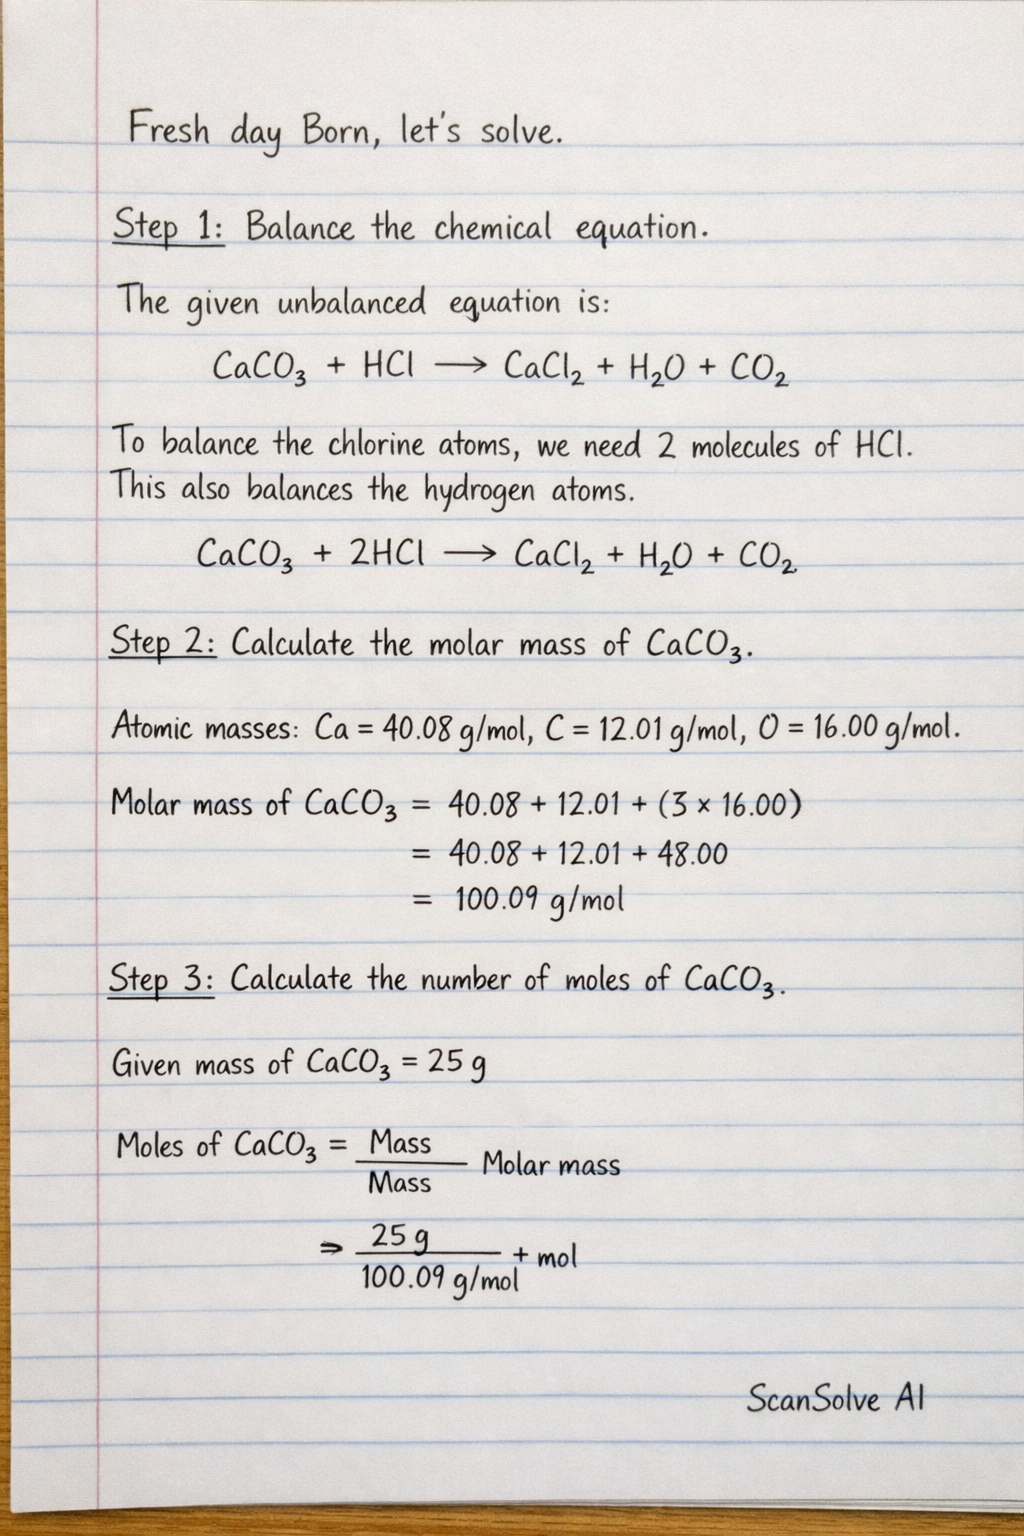 Fresh day Born, let's solve.
Step 1: Balance the chemical equation.
The given unbalanced equation is:
CaCO₃ + HCl ⟶ CaCl₂ + H₂O + CO₂
To balance the chlorine atoms, we need 2 molecules of HCl.
This also balances the hydrogen atoms.
CaCO₃ + 2HCl ⟶ CaCl₂ + H₂O + CO₂
Step 2: Calculate the molar mass of CaCO₃.
Atomic masses: Ca = 40.08 g/mol, C = 12.01 g/mol, O = 16.00 g/mol.
Molar mass of CaCO₃ = 40.08 + 12.01 + (3 × 16.00)
= 40.08 + 12.01 + 48.00
= 100.09 g/mol
Step 3: Calculate the number of moles of CaCO₃.
Given mass of CaCO₃ = 25 g
Moles of CaCO₃ = Mass
Molar mass
Mass
⇒ 25 g
+ mol
100.09 g/mol
ScanSolve AI